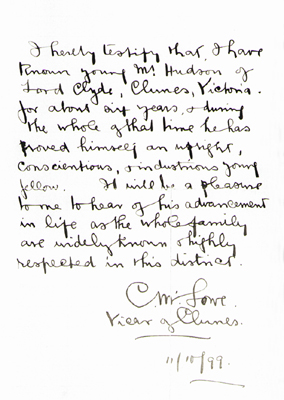 I hereby testify that I have
known young Mr Hudson of
Lord Clyde, Clunes, Victoria.
for about six years, & during
the whole of that time he has
proved himself an upright,
conscientious, & industrious young
fellow. It will be a pleasure
to me to hear of his advancement
in life as the whole family
are widely known & highly
respected in this district.
C. Mc. Lowe.
Vicar of Clunes.
11/10/99.